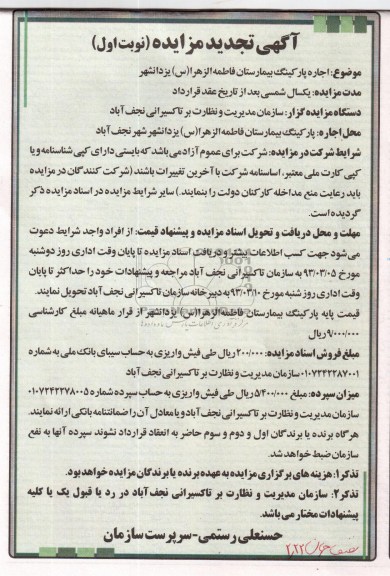 آگهی تجدید مزایده (نوبت اول)
موضوع: اجاره پارکینگ بیمارستان فاطمه الزهرا(س) یزدانشهر
مدت مزایده: یکسال شمسی بعد از تاریخ عقد قرارداد
دستگاه مزایده گزار: سازمان مدیریت و نظارت بر تاکسیرانی نجف آباد
محل اجاره: پارکینگ بیمارستان فاطمه الزهرا(س) یزدانشهر شهر نجف آباد
شرایط شرکت در مزایده: شرکت برای عموم آزاد می باشد که بایستی دارای کپی شناسنامه و یا
کپی کارت ملی معتبر، اساسنامه شرکت با آخرین تغییرات باشند (شرکت کنندگان در مزایده
باید رعایت منع مداخله کارکنان دولت را بنمایند.) سایر شرایط مزایده در اسناد مزایده ذکر
گردیده است.
مهلت و محل دریافت و تحویل اسناد مزایده و پیشنهاد قیمت: از افراد واجد شرایط دعوت
می شود جهت کسب اطلاعات بیشتر و دریافت اسناد مزایده تا پایان وقت اداری روز دوشنبه
مورخ ۹۳/۰۳/۰۵ به سازمان تاکسیرانی نجف آباد مراجعه و پیشنهادات خود را حداکثر تا پایان
وقت اداری روز شنبه مورخ ۹۳/۰۳/۱۰ به دبیرخانه سازمان تاکسیرانی نجف آباد تحویل نمایند.
قیمت پایه پارکینگ بیمارستان فاطمه الزهرا(س) یزدانشهر از قرار ماهیانه مبلغ کارشناسی
۹/۰۰۰/۰۰۰ ریال
مبلغ فروش اسناد مزایده: ۲۰۰/۰۰۰ ریال طی فیش واریزی به حساب سیبای بانک ملی به شماره
۰۱۰۷۲۴۲۲۸۷۰۰۱ سازمان مدیریت و نظارت بر تاکسیرانی نجف آباد
میزان سپرده: مبلغ ۵/۴۰۰/۰۰۰ ریال طی فیش واریزی به حساب سپرده شماره ۰۱۰۷۲۴۲۲۷۸۰۰۵
سازمان مدیریت و نظارت بر تاکسیرانی نجف آباد و یا معادل آن را ضمانتنامه بانکی ارائه نمایند.
هرگاه برنده یا برندگان اول و دوم و سوم حاضر به انعقاد قرارداد نشوند سپرده آنها به نفع
سازمان ضبط خواهد شد.
تذکر۱: هزینه های برگزاری مزایده به عهده برنده یا برندگان مزایده خواهد بود.
تذکر۲: سازمان مدیریت و نظارت بر تاکسیرانی نجف آباد در رد یا قبول یک یا کلیه
پیشنهادات مختار می باشد.
حسنعلی رستمی-سرپرست سازمان